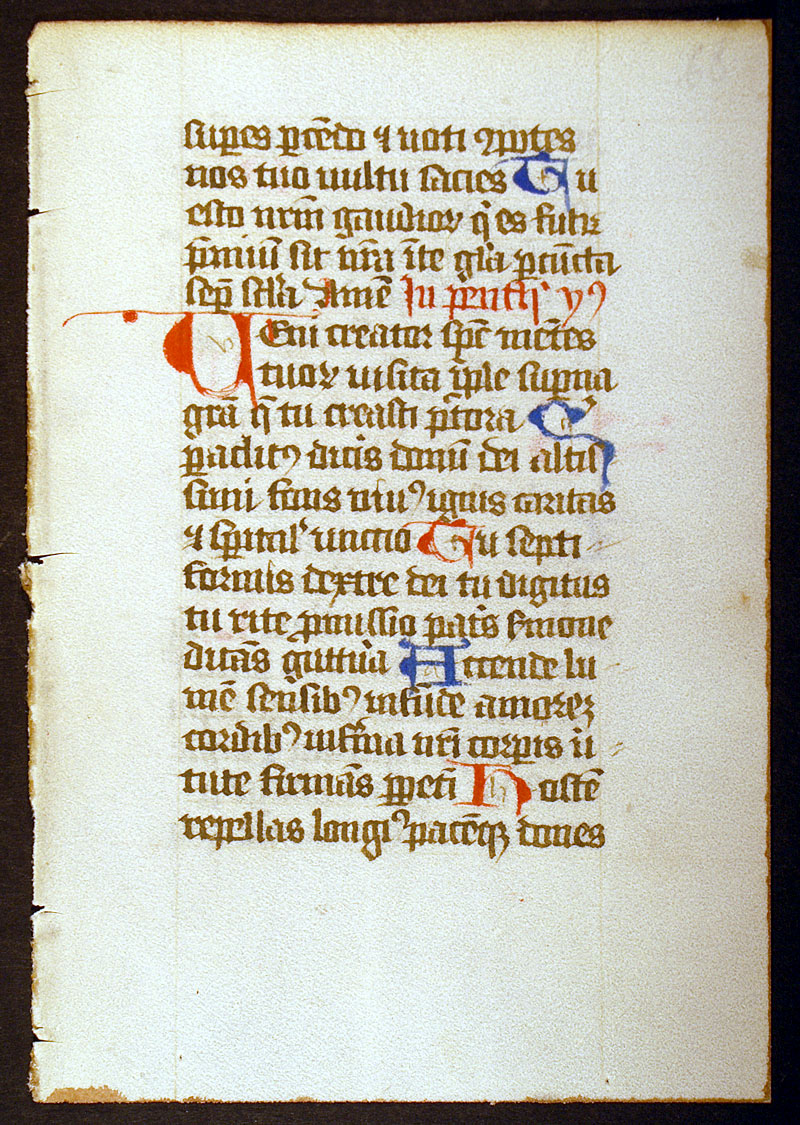 sup̄es p̲cēdo ⁊ voti ꝯpotes
nos tuo vultu sacies Tu
esto nr̄m gaudioꝝ qͥ es futꝰr
p̄miū sit nr̄a īte glͥa p̲cūcta
sep̄ sclͣa Amē In pentҽ̄ yꝰ
VEni creator spc̄ mētes
tuoꝝ visita īple sup̲na
grā q̄ tu creasti pc̄tora Q
paclitꝰ dicͥs donū dei altis
simi fons viuꝰ ignis caritas
⁊ sp̄italꝰ vnctio Tu septi
formis dextre dei tu digitus
tu rite ꝓmissio patͥs s̄mone
ditās guttura Accende lu
mē sensibꝰ infūde amorez
cordibꝰ infirma nrī corpis v̄
tute firmās ppetī Hostē
repellas longiꝰ pacēqꝫ dones